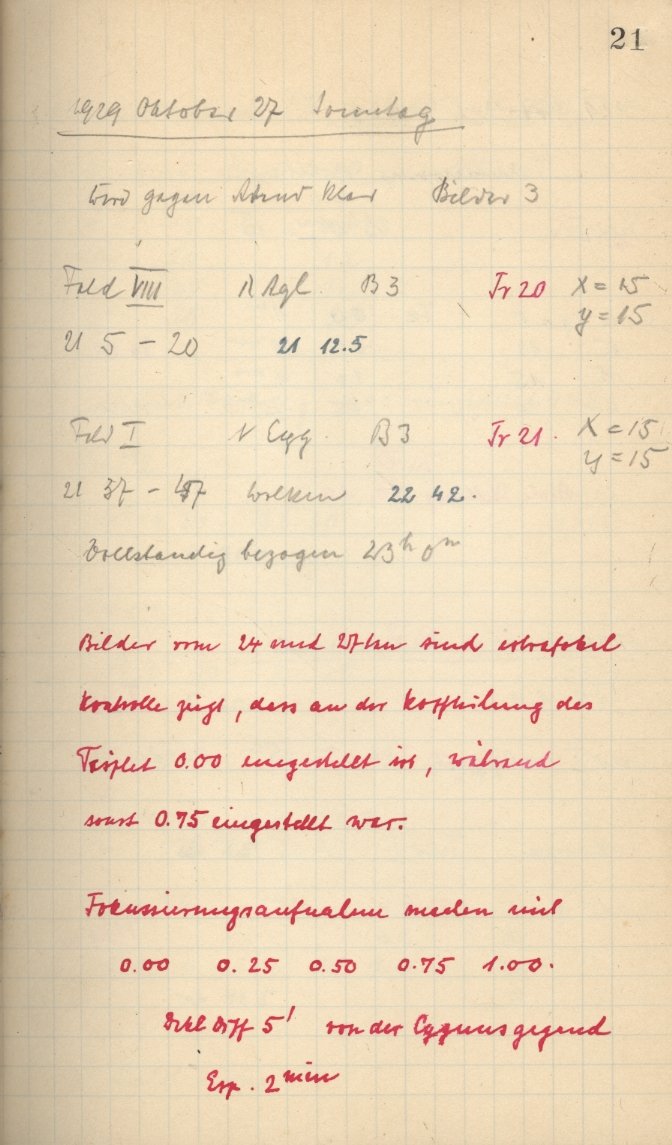 21
1929 Oktober 27 Sonntag
Wird gegen Abend klar Bilder 3
Feld VIII R Aql B3 Tr 20 X = 15
y = 15
21 5 - 20 21 12.5
Feld I Cyg B3 Tr 21. X = 15
y = 15
21 37 - 47 Wolken 22 42.
Vollständig bezogen 23h 0m
Bilder vom 24 und 27ten sind extrafokal
Kontrolle zeigt, dass an der des
Triplet 0.00 eingestellt ist, während
sonst 0.75 eingestellt war.
Fokussierungsaufnahmen machen mit
0.00 0.25 0.50 0.75 1.00.
Dekl Diff 5' von der Cygnusgegend
Exp. 2 min